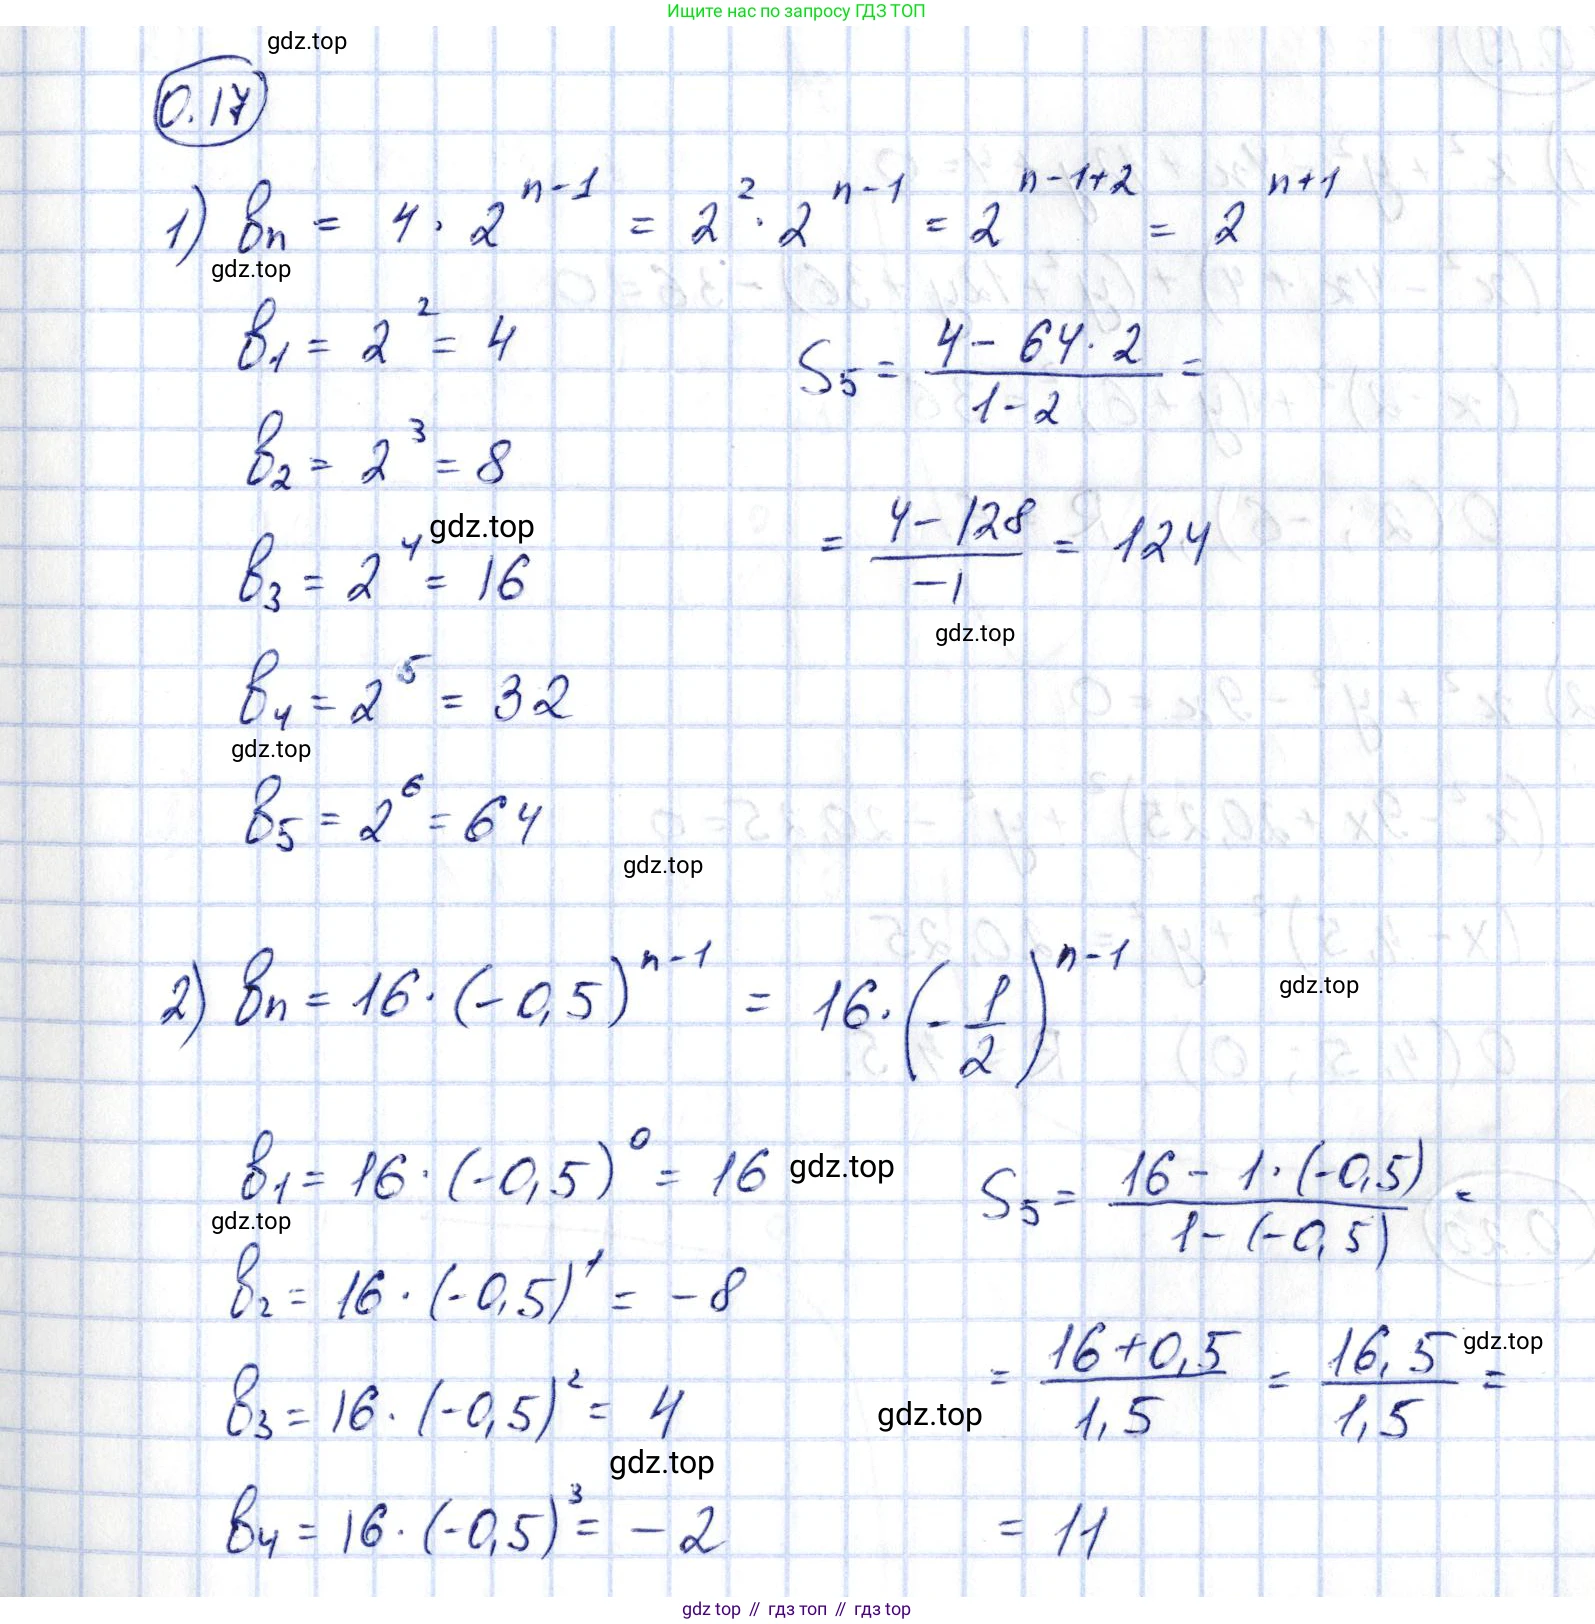 Ищите нас по запросу ГДЗ ТОП
gdz.top
0.17
1) bn = 4 · 2^(n-1) = 2^2 · 2^(n-1) = 2^(n-1+2) = 2^(n+1)
gdz.top
b1 = 2^2 = 4
S5 = (4 - 64 · 2)/(1 - 2) =
b2 = 2^3 = 8
gdz.top
= (4 - 128)/(-1) = 124
b3 = 2^4 = 16
gdz.top
b4 = 2^5 = 32
gdz.top
b5 = 2^6 = 64
gdz.top
2) bn = 16 · (-0,5)^(n-1) = 16 · (-1/2)^(n-1)
gdz.top
b1 = 16 · (-0,5)^0 = 16
gdz.top
S5 = (16 - 1 · (-0,5))/(1 - (-0,5)) =
gdz.top
b2 = 16 · (-0,5)^1 = -8
= (16 + 0,5)/(1,5) = (16,5)/(1,5) =
gdz.top
b3 = 16 · (-0,5)^2 = 4
gdz.top
gdz.top
b4 = 16 · (-0,5)^3 = -2
= 11
gdz.top // гдз топ // гдз top